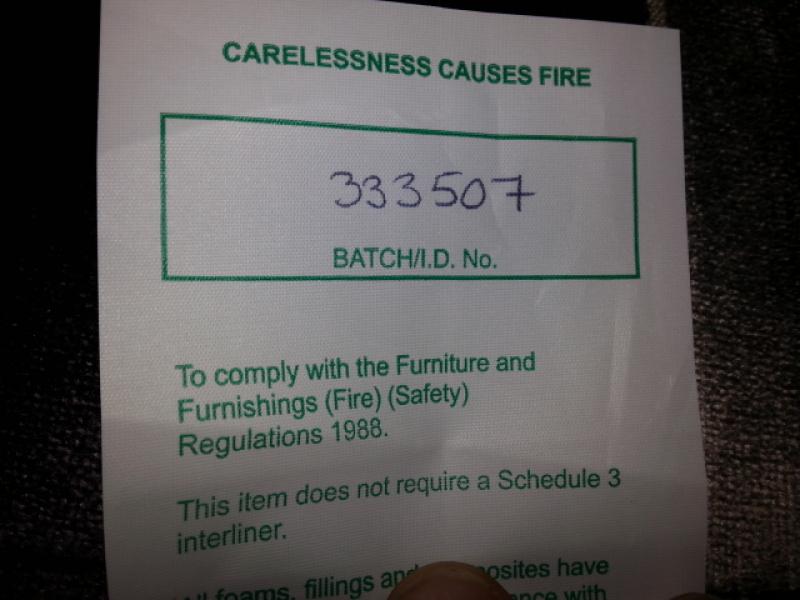 CARELESSNESS CAUSES FIRE
333507
BATCH/I.D. No.
To comply with the Furniture and
Furnishings (Fire) (Safety)
Regulations 1988.
This item does not require a Schedule 3
interliner.
foams, fillings have
with